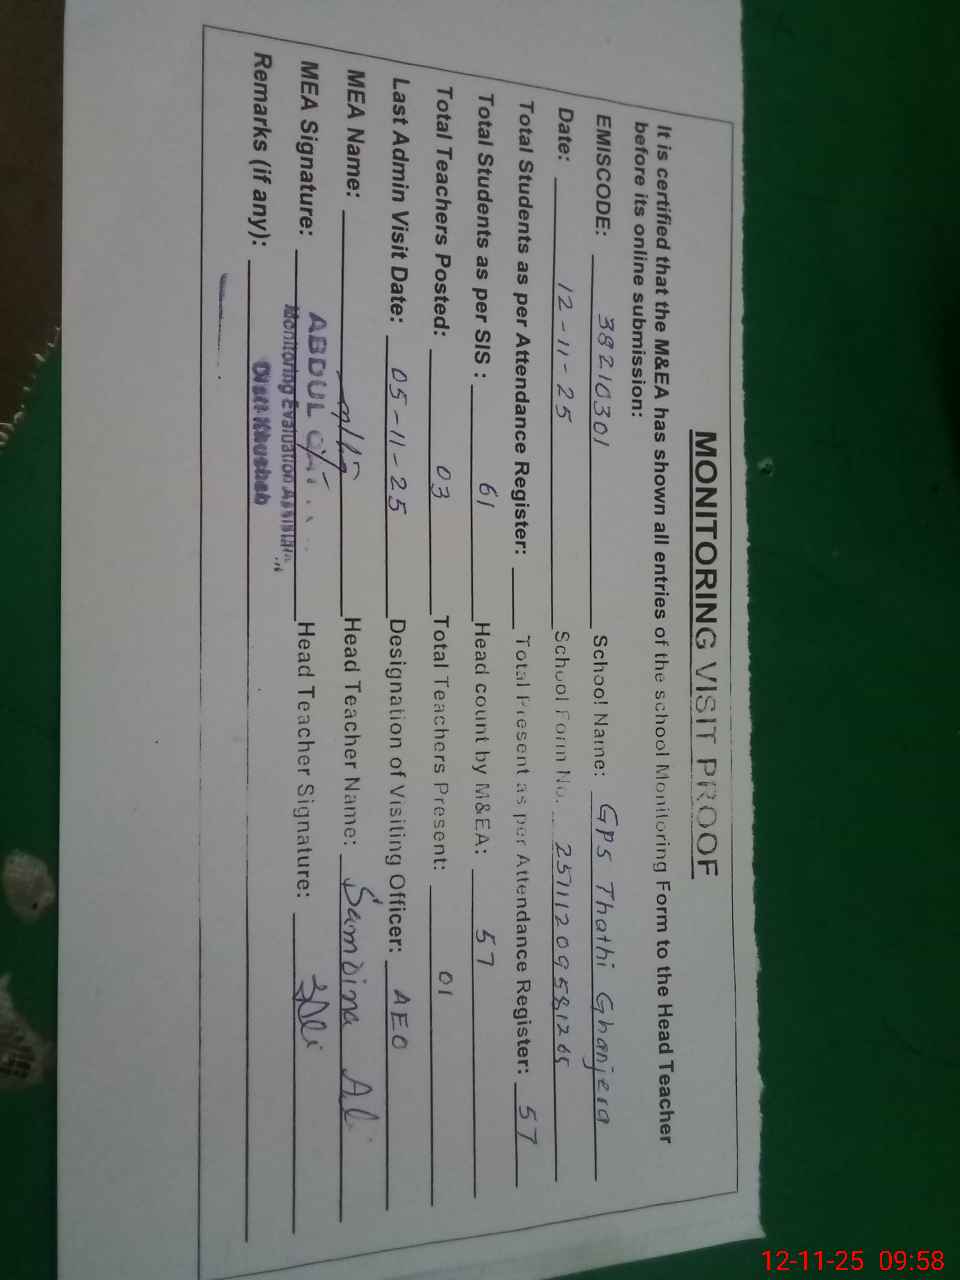 MONITORING VISIT PROOF
It is certified that the M&EA has shown all entries of the school Monitoring Form to the Head Teacher
before its online submission:
EMISCODE: 38210301 School Name: GPS Thathi Ghanjera
Date: 12-11-25 School Form No. 251112095812
Total Students as per Attendance Register: Total Present as per Attendance Register: 57
Total Students as per SIS: 61 Head count by M&EA: 57
Total Teachers Posted: 03 Total Teachers Present: 01
Last Admin Visit Date: 05-11-25 Designation of Visiting Officer: AEO
MEA Name: Head Teacher Name: Ali
MEA Signature: ABDUL Head Teacher Signature:
Monitoring Evaluation Assistant
Remarks (if any): Distt Khushab
12-11-25 09:58